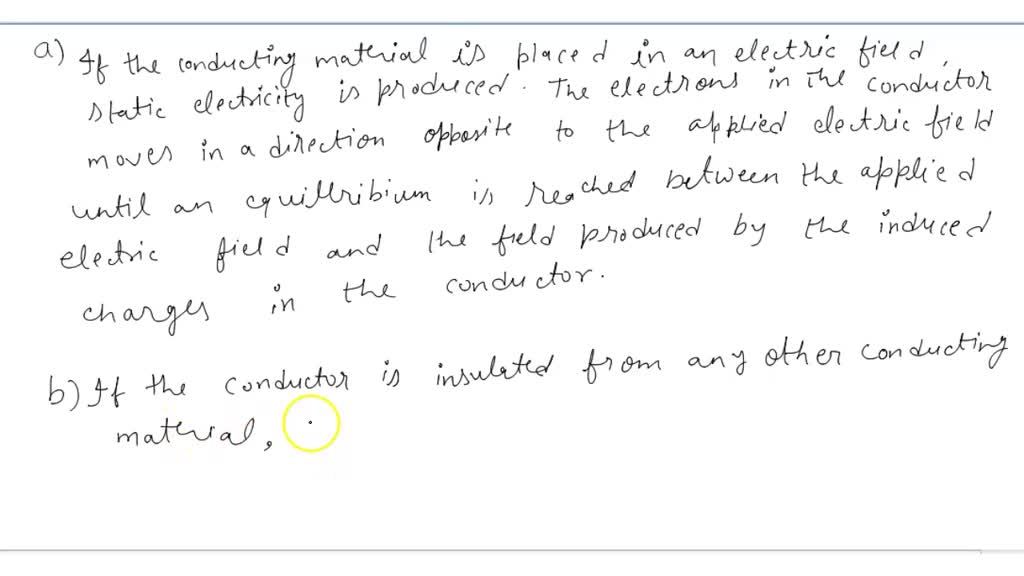 a) If the conducting material is placed in an electric field,
static electricity is produced. The electrons in the conductor
moves in a direction opposite to the applied electric field
until an equillribium is reached between the applied
electric field and the field produced by the induced
charges in the conductor.
b) If the conductor is insulated from any other conducting
material,